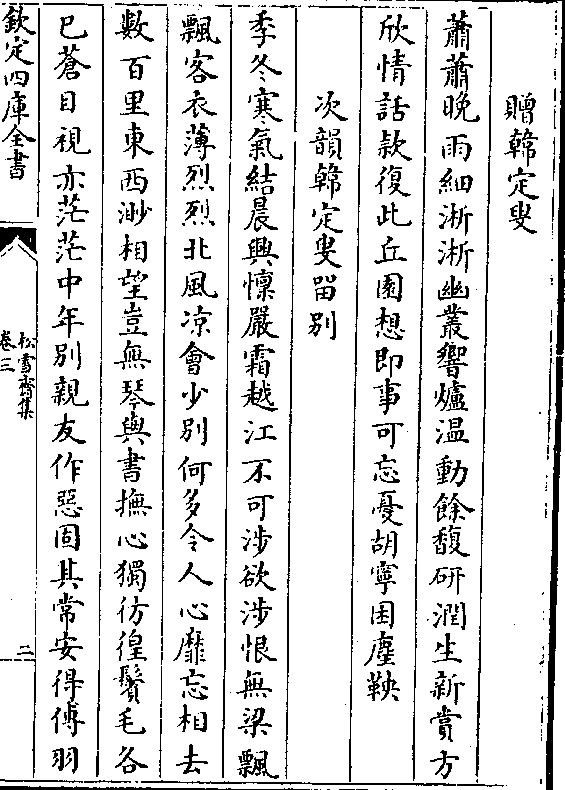 贈韓定叟
蕭蕭晚雨細淅淅幽叢響爐温動餘馥研潤生新賞方
欣情話欵復此丘園想即事可忘憂胡寧困塵鞅
次韻韓定叟留别
季冬寒氣結晨興懍嚴霜越江不可涉欲涉恨無梁飄
飄客衣薄烈烈北風凉會少别何多令人心靡忘相去
數百里東西渺相望豈無琴與書撫心獨彷徨鬢毛各
已蒼目視亦茫茫中年别親友作惡固其常安得傅羽
欽定四庫全書
松雪齋集
卷三
二